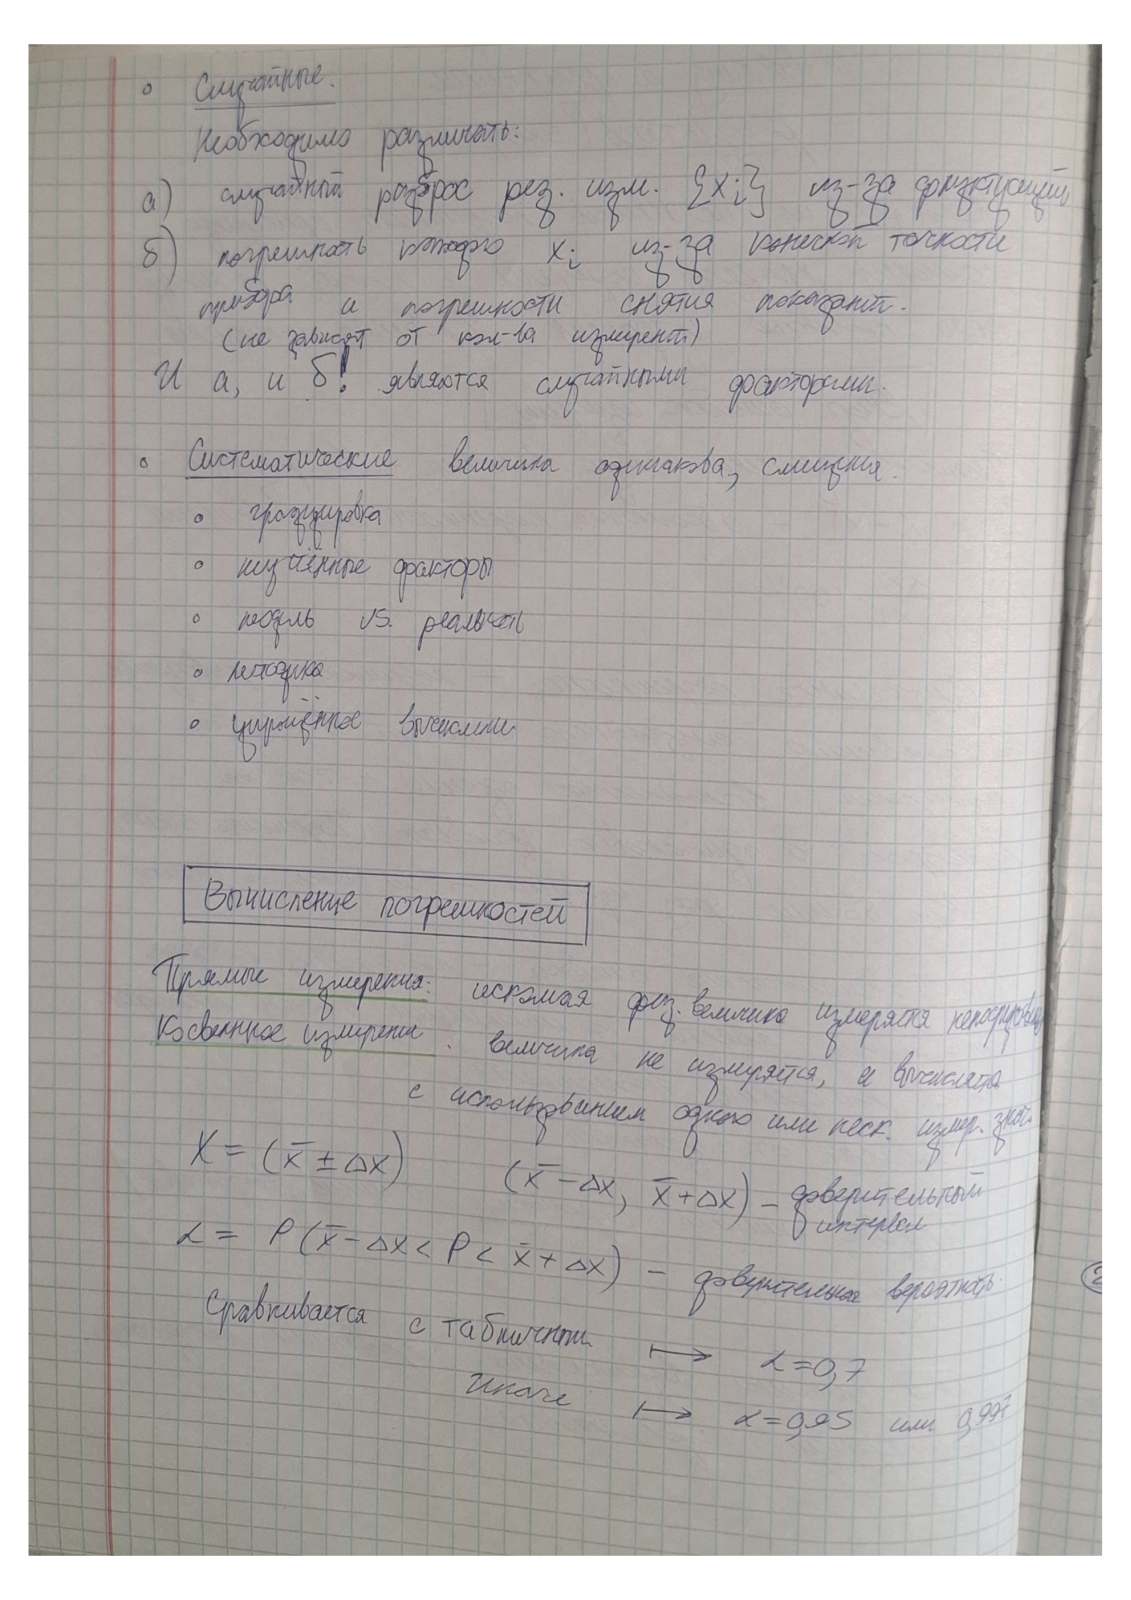 ◦ Случайные.
Необходимо различать:
а) случайный разброс рез. изм. {xᵢ} из-за флуктуаций
б) погрешность каждого xᵢ из-за конечной точности
прибора и погрешности снятия показаний.
(не зависят от кол-ва измерений)
И а, и б! являются случайными факторами.
◦ Систематические величина одинакова,
◦ градуировка
◦ неучтённые факторы
◦ модель vs. реальность
◦ методика
◦ упрощённое вычисление
Вычисление погрешностей
Прямые измерения: искомая физ. величина измеряется непосредственно
Косвенные измерения. величина не измеряется, а вычисляется
с использованием одного или неск. измер. знач.
X = (x̄ ± Δx) (x̄ - Δx, x̄ + Δx) – доверительный
интервал
α = P(x̄ - Δx < P < x̄ + Δx) – доверительная вероятность.
Сравнивается с табличным ↦ α = 0,7
Иначе ↦ α = 0,95 или 0,997